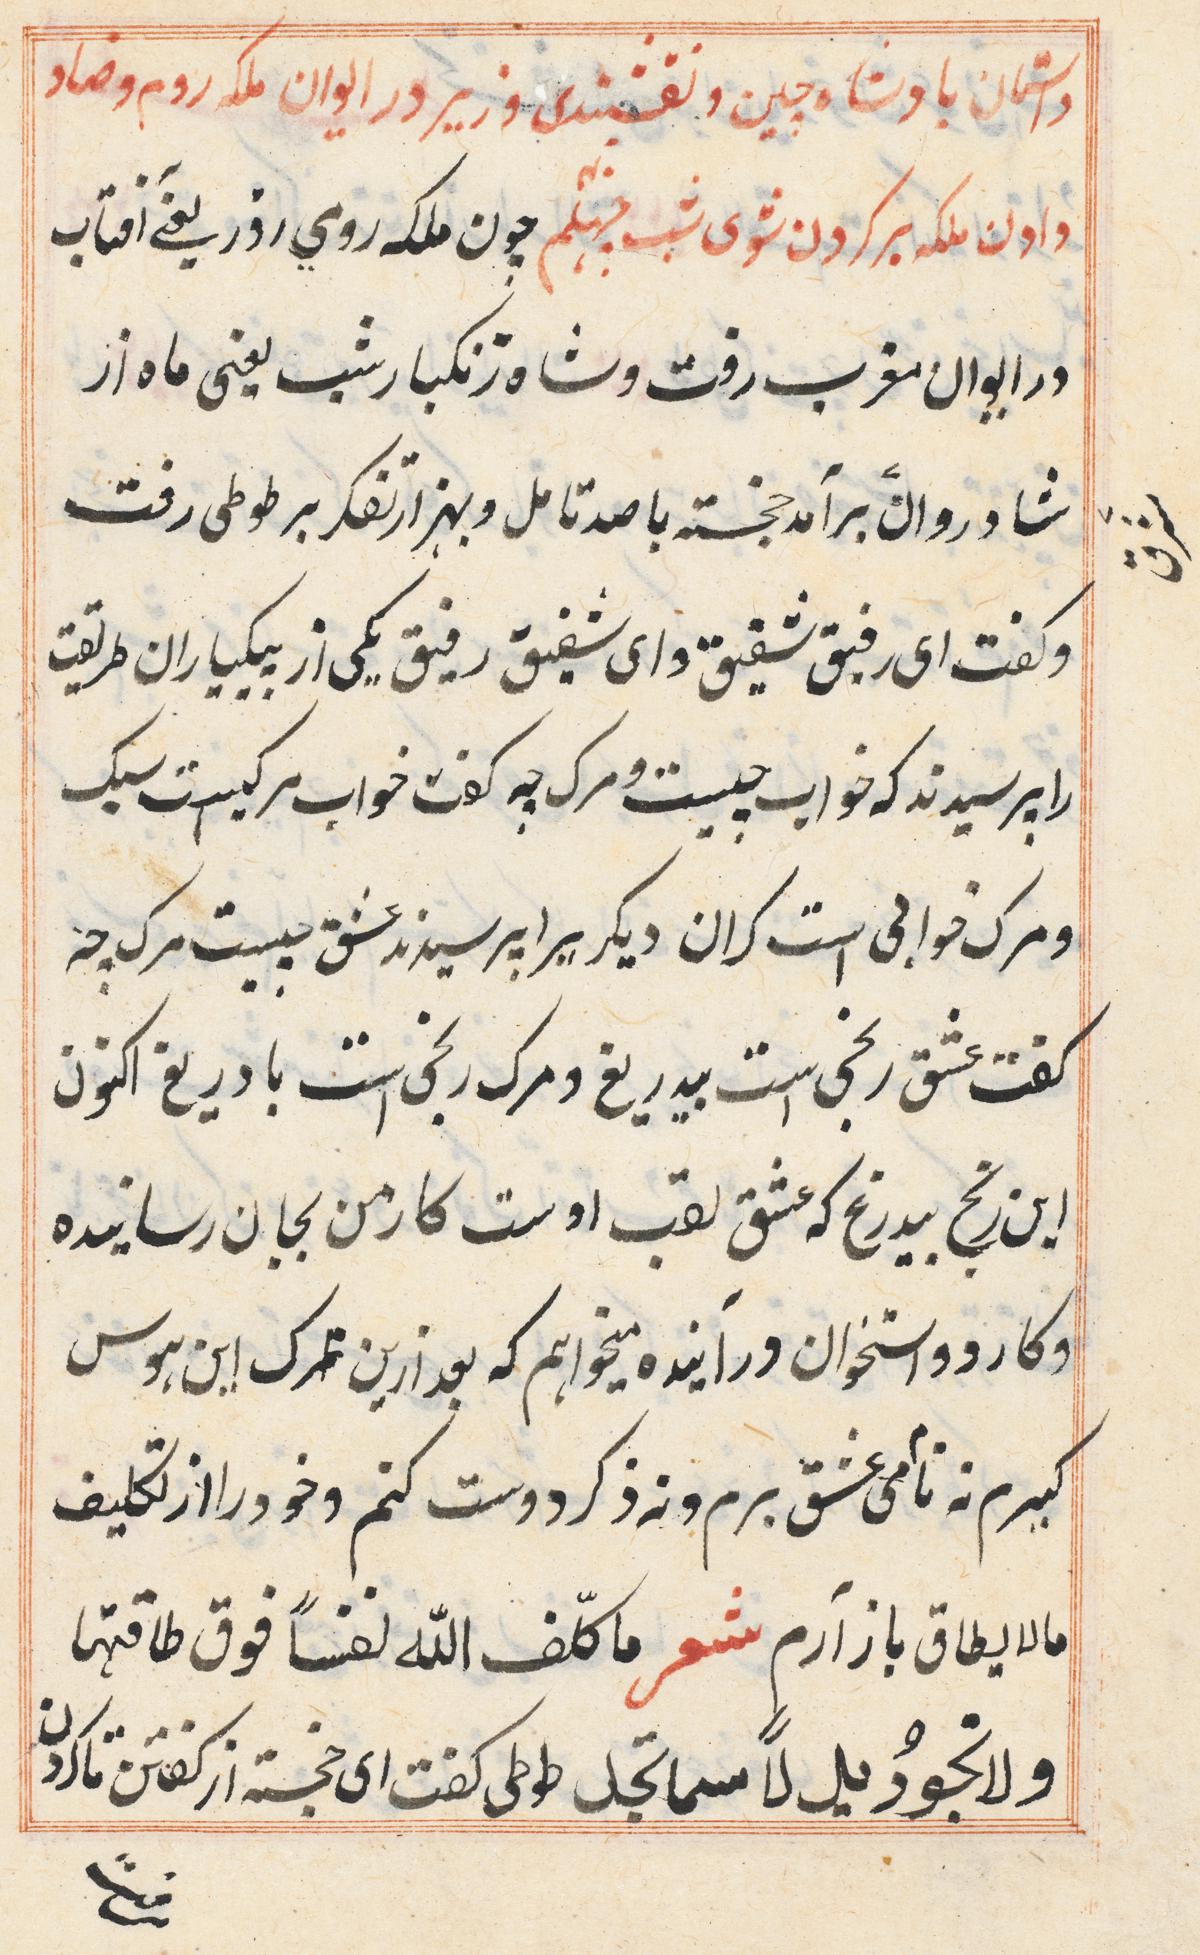 داستان بادشاه چین و نقشبندی وزیر در ایوان ملکه روم و ضاد
دادن ملکه بر کردن شوی شب چهلم چون ملکه روی روز یعنی آفتاب
در ایوان مغرب رفت و شاه زنکبار شب یعنی ماه از
شادروان برآمد خجسته با صد تامل و بهزار تفکر بر طوطی رفت
مشرق
و کفت ای رفیق شفیق و ای شفیق رفیق یکی از طریقت
را پرسیدند که خواب چیست و مرک چه کفت خواب مرکیست سبک
و مرک خوابی است کران دیکریرا پرسیدند عشق چیست مرک چه
کفت عشق رنجی است بیدریغ و مرک رنجی است بادریغ اکنون
این رنج بیدرغ که عشق لقب اوست کار من بجان رسانیده
و کارد و استخوان در آینده میخواهم که بعد ازین ترک این هوس
کیرم نه نام عشق برم و نه ذکر دوست کنم و خود را از تکلیف
مالا یطاق باز آرم شعر ما کلّف اللّه نفساً فوق طاقتها
ولا تجود الا بما تجد طوطی کفت ای خجسته از کفتن تا کردن